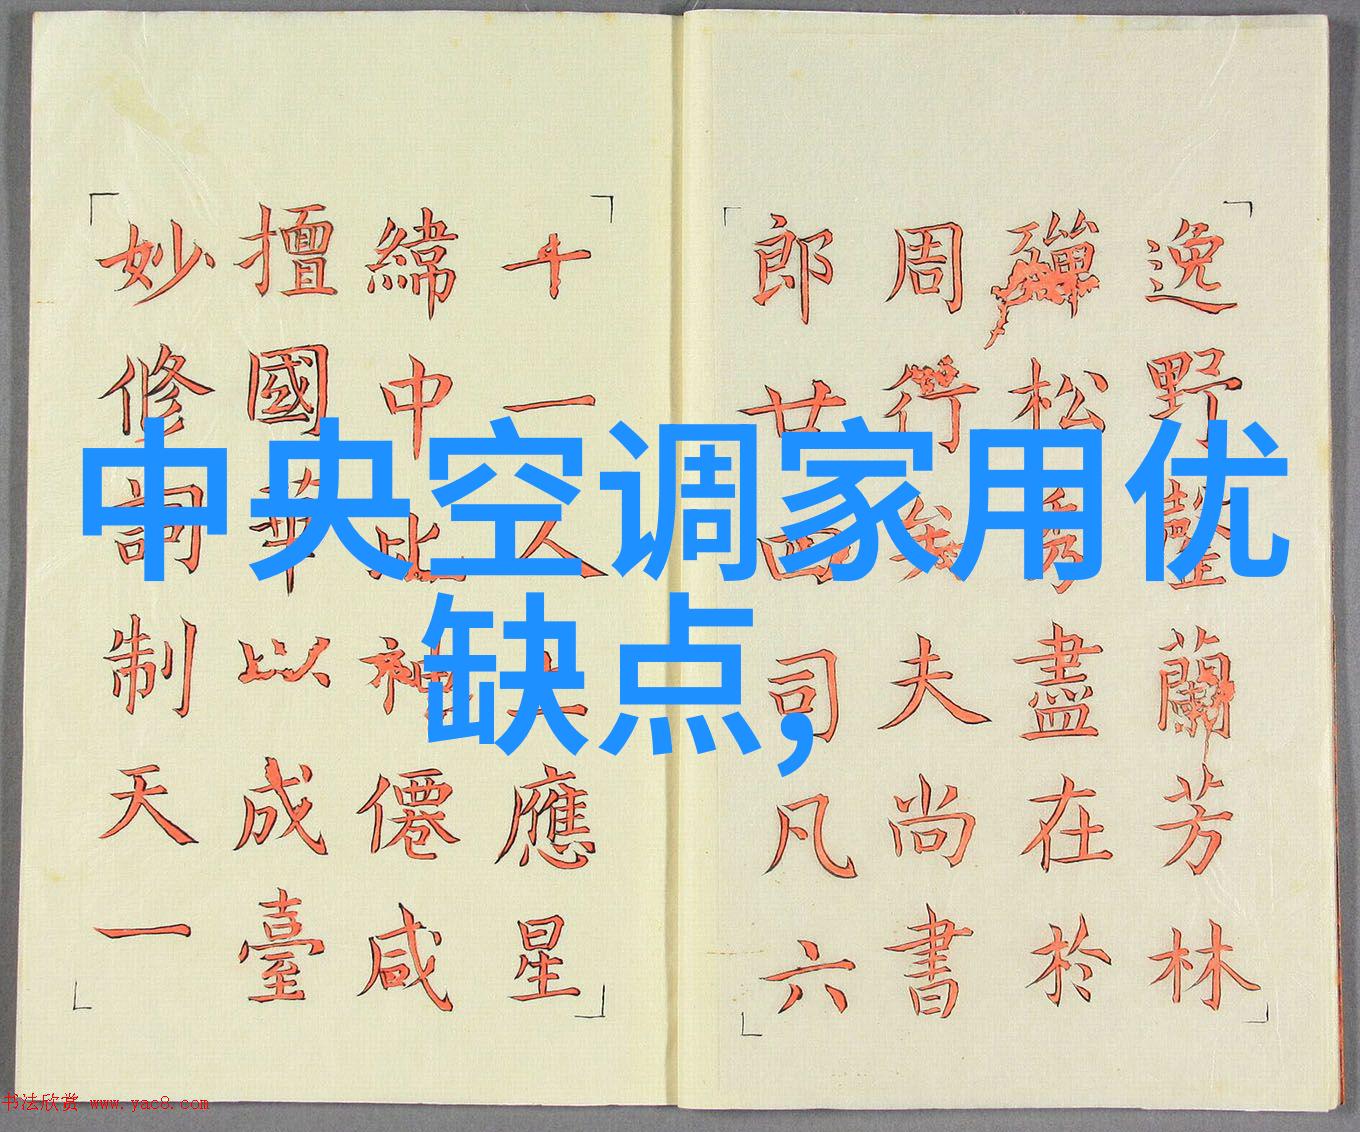 中央空调家用优
缺点,
逸野罄蘭芳林
殫松秀盡在於
周行矣夫尚書
郎廿四司凡六
十一人上應星
緯中比神僊咸
擅國華以成臺
妙修詞制天一
书法欣赏 www.yac8.com